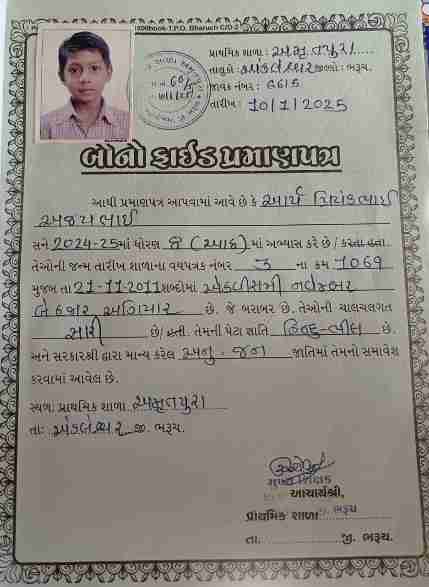 પ્રાથમિક શાળા : અમૃતપુરા
તાલુકો અંકલેશ્વર જીલ્લો : ભરૂચ.
જાવક નંબર : 6615
તારીખ : 10/1/2025
બોનો ફાઈડ પ્રમાણપત્ર
આથી પ્રમાણપત્ર આપવામાં આવે છે કે આર્ય
અજયભાઈ
સને 2024-25માં ધોરણ 8 (આઠ) માં અભ્યાસ કરે છે / કરતા હતા.
તેઓની જન્મ તારીખ શાળાના વયપત્રક નંબર 3 ના ક્રમ 1069
મુજબ તા 21-11-2011 શબ્દોમાં એકવીસમી નવેમ્બર
બે હજાર અગિયાર છે. જે બરાબર છે. તેઓની ચાલચલગત
સારી છે/ હતી. તેમની પેટા જ્ઞાતિ હિન્દુ-ભીલ છે.
અને સરકારશ્રી દ્વારા માન્ય કરેલ અનુ. જન જાતિમાં તેમનો સમાવેશ
કરવામાં આવેલ છે.
સ્થળ: પ્રાથમિક શાળા અમૃતપુરા
તા: અંકલેશ્વર જી. ભરૂચ.
મુખ્ય શિક્ષક
આચાર્યશ્રી,
પ્રાથમિક શાળા
તા. જી. ભરૂચ.